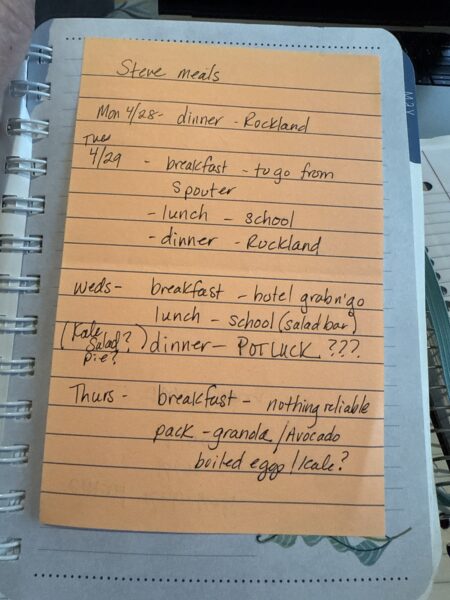 Steve meals
Mon 4/28- dinner - Rockland
Tues
4/29 - breakfast - to go from
Spouter
- lunch - school
- dinner - Rockland
Weds - breakfast - hotel grab n' go
lunch - school (salad bar)
(Kale Salad? pie?) dinner - POTLUCK ???
Thurs - breakfast - nothing reliable
pack - granola / Avocado
boiled eggs / Kale?
MAY